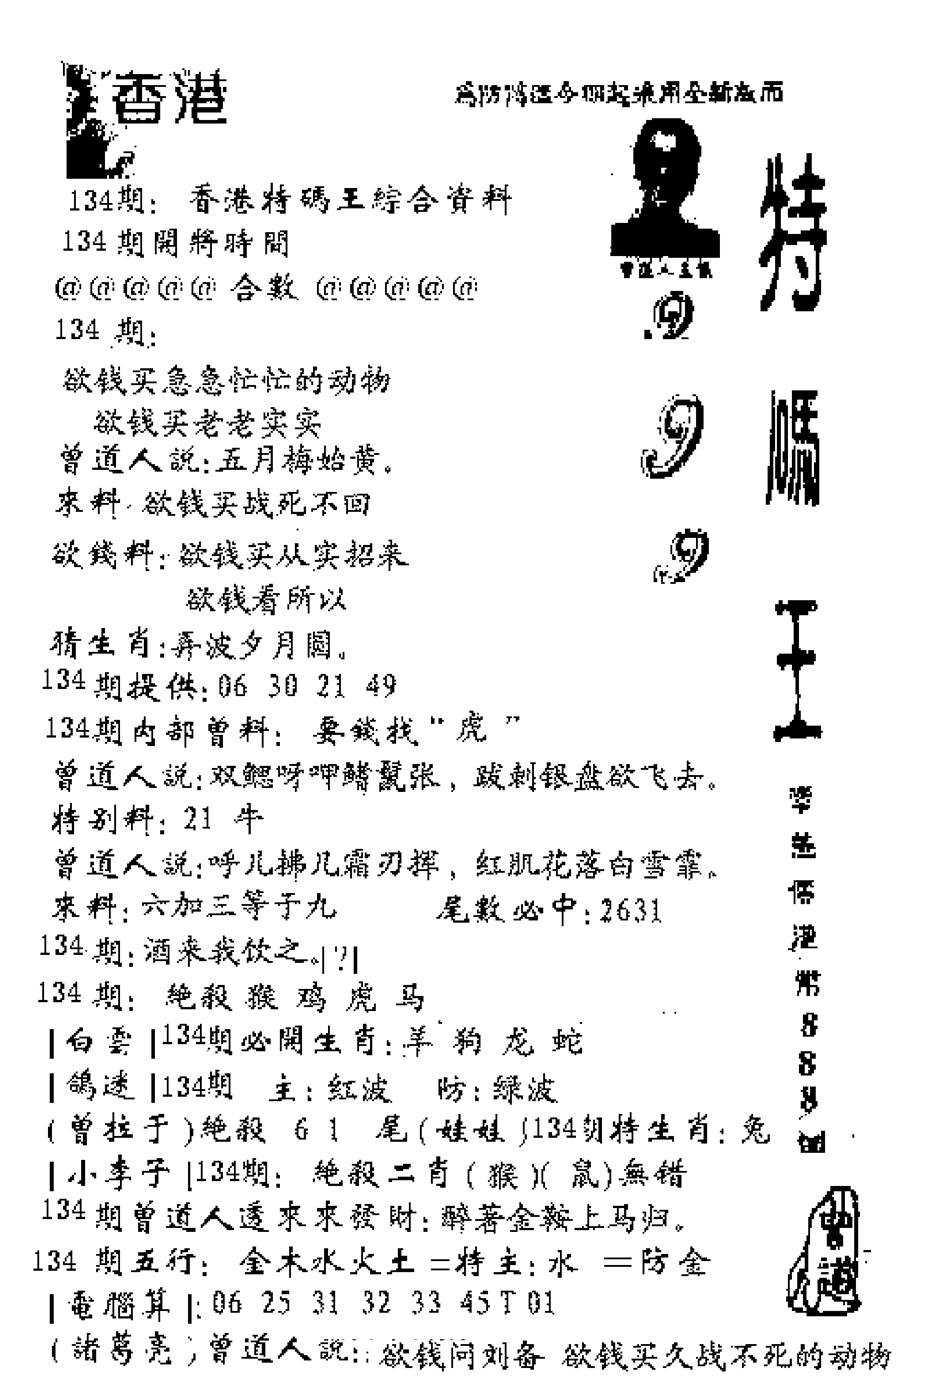 香港
134期： 香港特碼王綜合資料
134期開將時間
@@@@@ 合數 @@@@@
134 期：
欲钱买急急忙忙的动物
欲钱买老老实实
曾道人説:五月梅始黄。
來料: 欲钱买战死不回
欲錢料:欲钱买从实招来
欲钱看所以
猜生肖:弄波夕月圓。
134期提供:06 30 21 49
134期内部曾料： 要錢找“虎”
曾道人説:双鳃呀呷鳍鬣张，跋刺银盘欲飞去。
特别料：21 牛
曾道人説:呼儿拂几霜刃挥，红肌花落白雪霏。
來料：六加三等于九 尾數必中:2631
134期:酒来我饮之。|?|
134期： 絶殺 猴 鸡 虎 马
|白雲|134期必開生肖:羊 狗 龙 蛇
|鴿迷|134期 主:红波 防:绿波
(曾拉于)絶殺 6 1 尾(娃娃)134期特生肖:兔
|小李子|134期： 絶殺二肖(猴)(鼠)無错
134期曾道人透來來發財:醉著金鞍上马归。
134 期五行： 金木水火土=特主:水 =防金
|電腦算|:06 25 31 32 33 45T01
(諸葛亮)曾道人説:欲钱问刘备 欲钱买久战不死的动物
特碼王
999
888
曾道